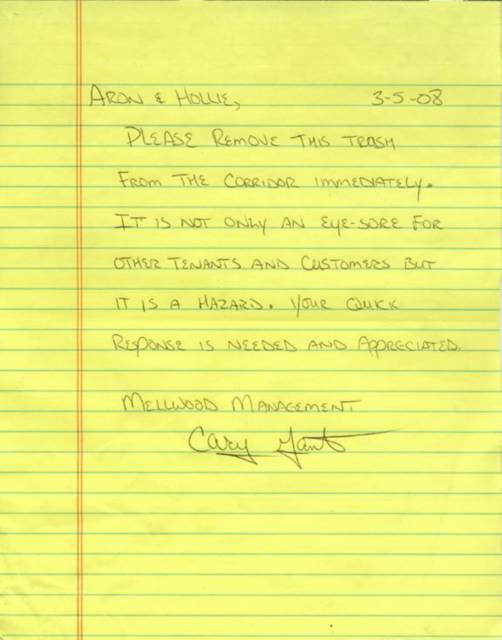 ARON & HOLLIE, 3-5-08
PLEASE REMOVE THIS TRASH
FROM THE CORRIDOR IMMEDIATELY.
IT IS NOT ONLY AN EYE-SORE FOR
OTHER TENANTS AND CUSTOMERS BUT
IT IS A HAZARD. YOUR QUICK
RESPONSE IS NEEDED AND APPRECIATED.
MELLWOOD MANAGEMENT
Cary Gant